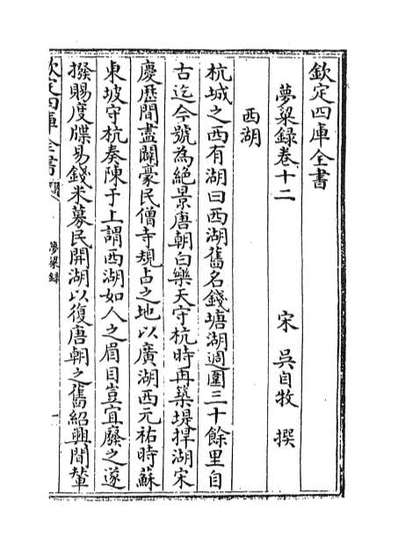 欽定四庫全書
夢粱録卷十二
宋 吳自牧 撰
西湖
杭城之西有湖曰西湖舊名錢塘湖週圍三十餘里自
古迄今號為絶景唐朝白樂天守杭時再築堤捍湖宋
慶歷間盡闢豪民僧寺規占之地以廣湖西元祐時蘇
東坡守杭奏陳于上謂西湖如人之眉目豈宜廢之遂
撥賜度牒易錢米募民開湖以復唐朝之舊紹興間輦
欽定四庫全書
夢粱録